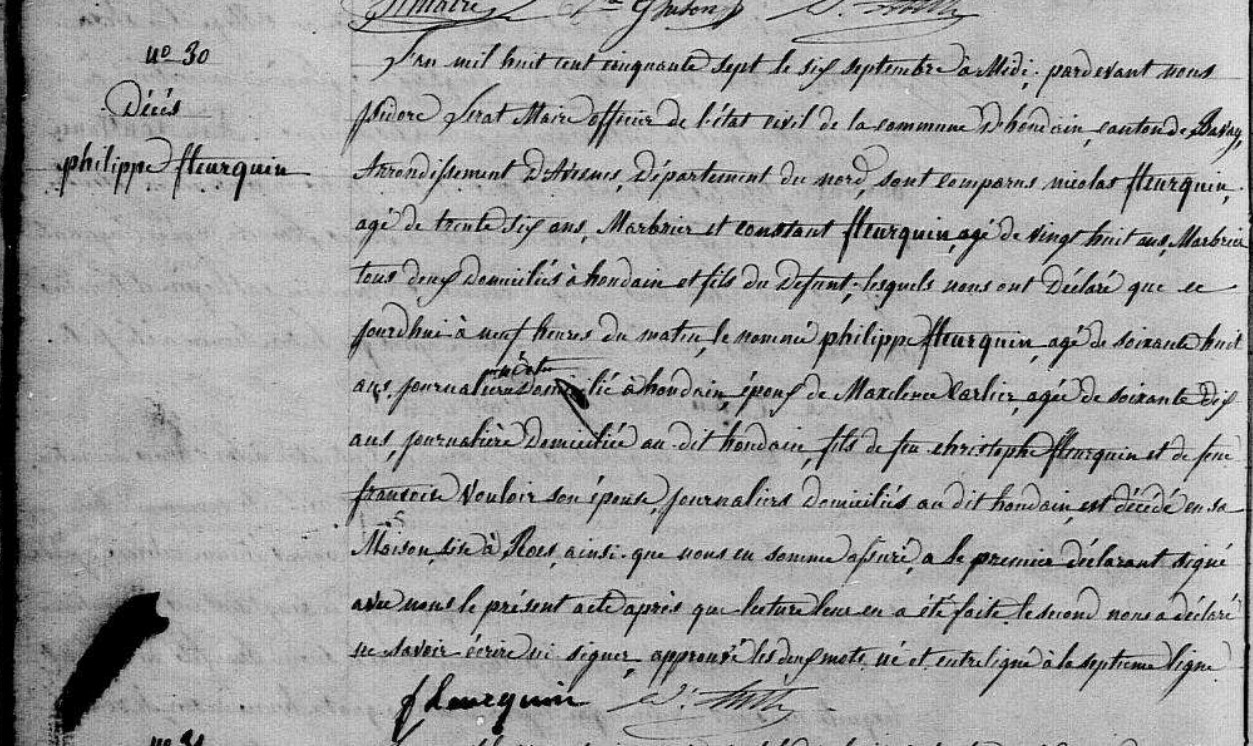 nº 30
Décès
philippe fleurquin
L'an mil huit cent cinquante sept le six septembre à Midi, pardevant nous
Isidore Maire officier de l'état civil de la commune D'houdain, canton de Bavay,
Arrondissement D'Avesnes, Département du nord, sont comparus nicolas fleurquin,
agé de trente six ans, Marbrier et constant fleurquin, agé de vingt huit ans, Marbrier
tous deux Domiciliés à houdain et fils du Defunt; lesquels nous ont Déclaré que ce
jourdhui à neuf heures du matin, le nommé philippe fleurquin, agé de soixante huit
né et
ans, journalier Domicilié à houdain, époux de Maxelence Carlier, agée de soixante Dix
ans, journalière Domiciliée au dit houdain, fils de feu christophe fleurquin et de feue
francoise Vouloir son épouse, journaliers domiciliés au dit houdain, est décédé en sa
Maison, sise à ainsi que nous en somme assuré, a le premier déclarant signé
avec nous le présent acte après que lecture leur en a été faite, le second nous a déclaré
ne savoir écrire ni signer, approuvé les deux mots, né et, entreligné à la septieme ligne
fleurquin
nº 31